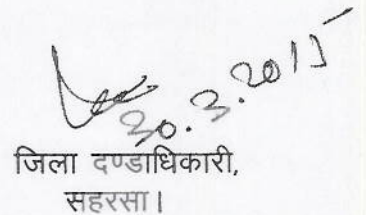 30.3.2015
जिला दण्डाधिकारी,
सहरसा।